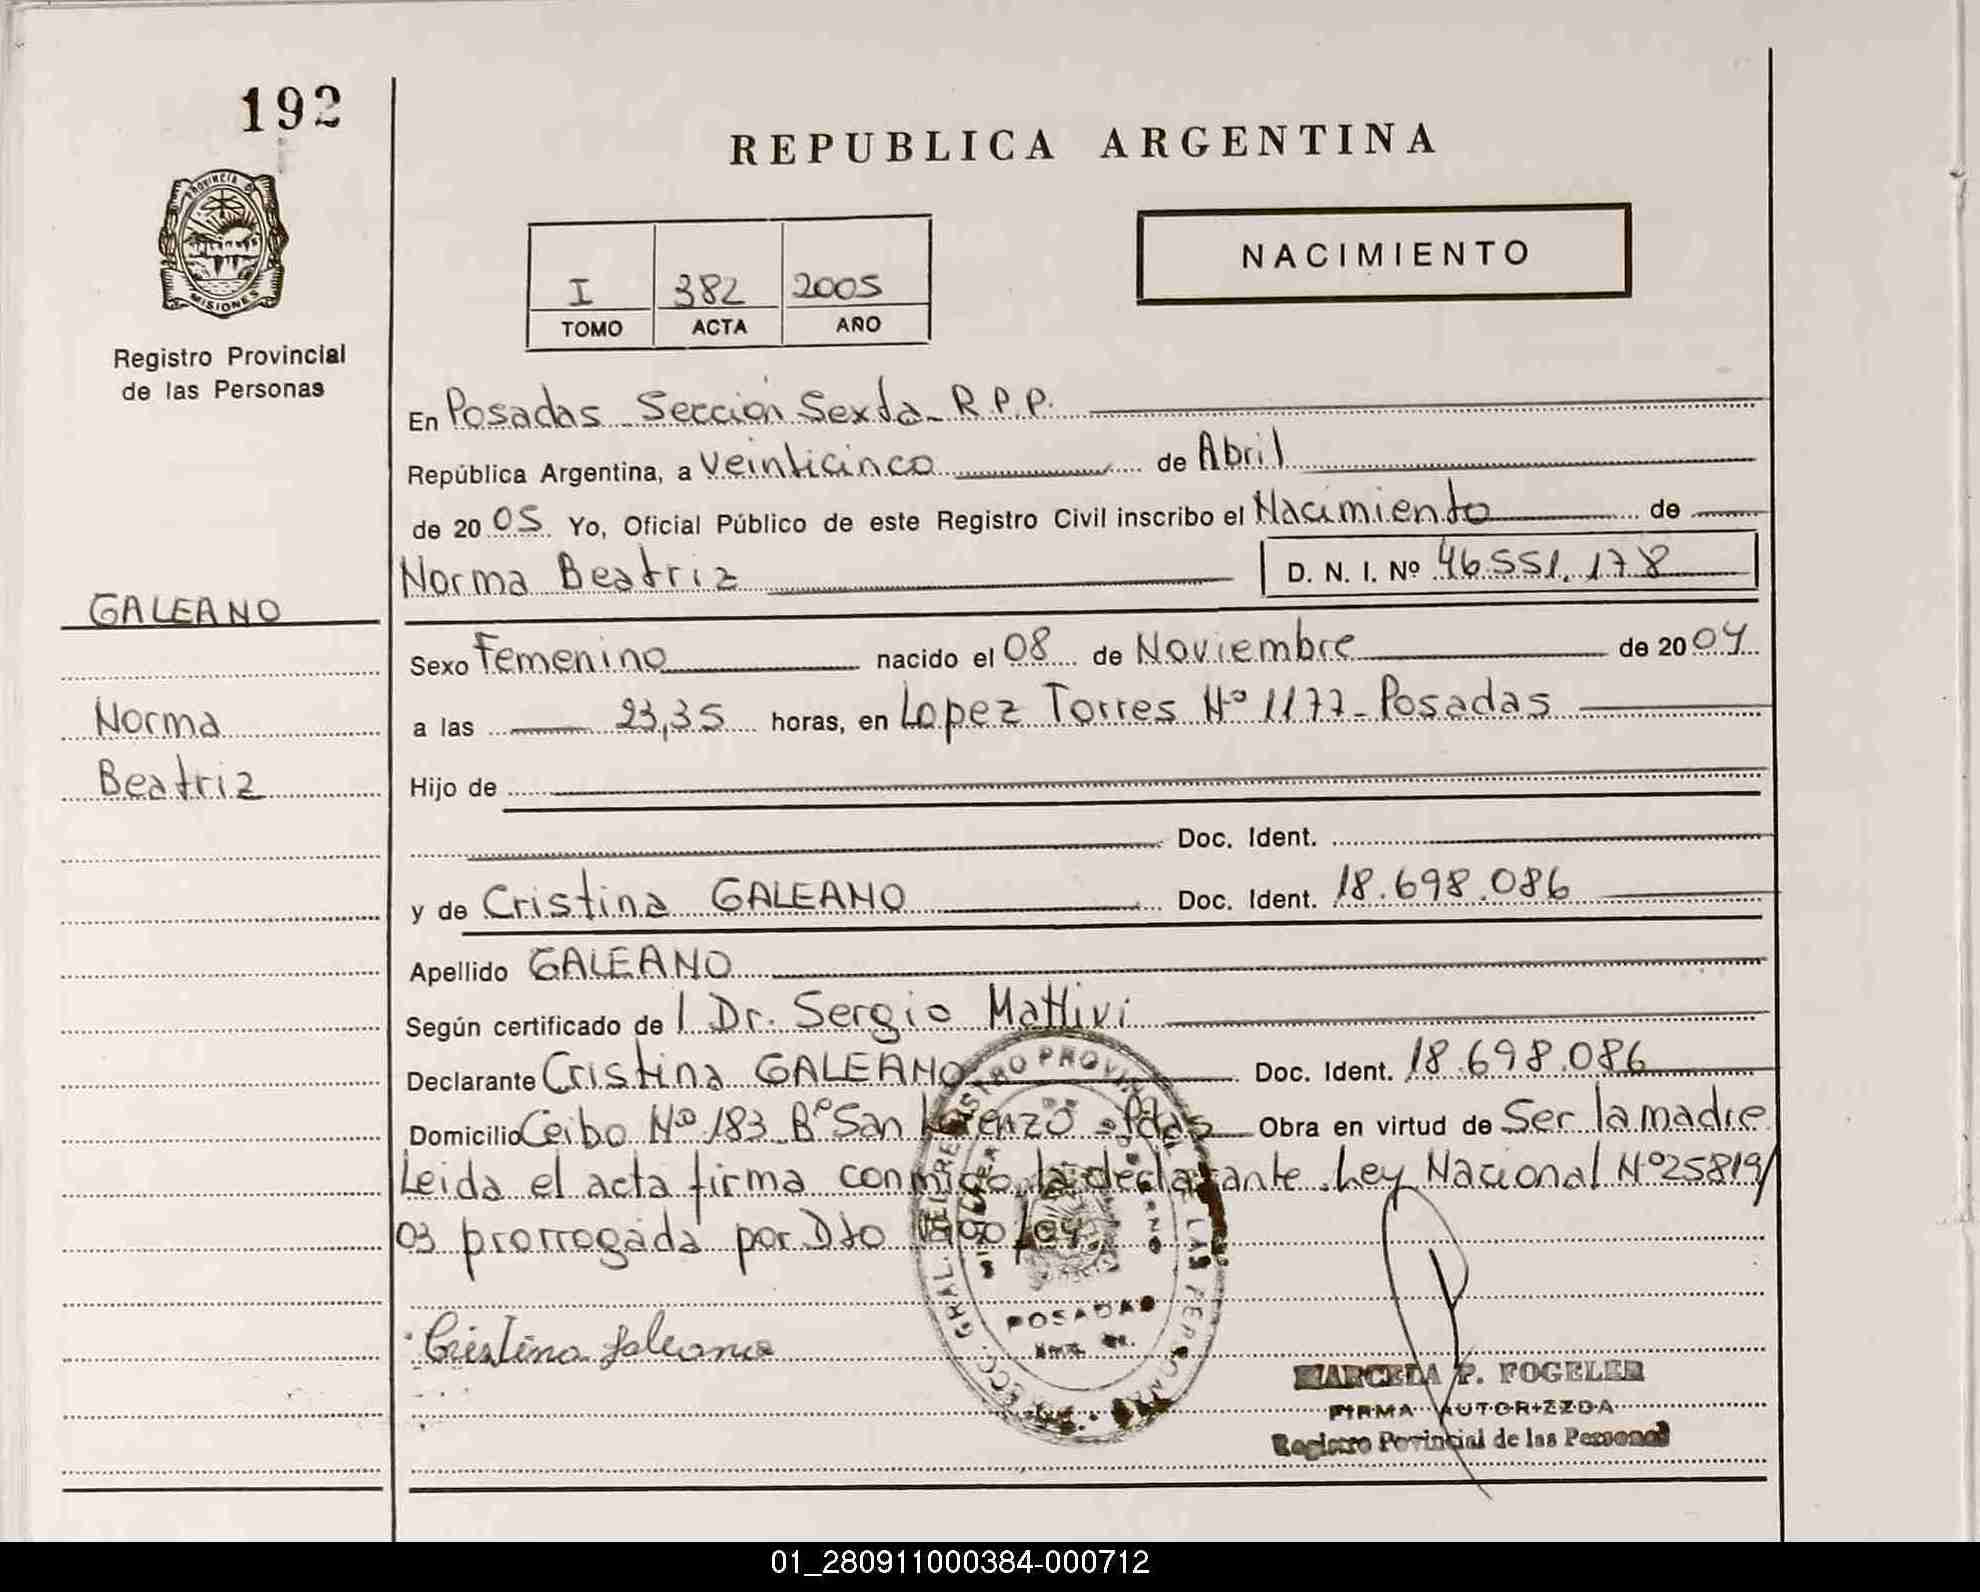 192
PROVINCIA DE
MISIONES
Registro Provincial
de las Personas
REPUBLICA ARGENTINA
I 382 2005
TOMO ACTA AÑO
NACIMIENTO
En Posadas Sección Sexta R.P.P.
República Argentina, a Veinticinco de Abril
de 2005 Yo, Oficial Público de este Registro Civil inscribo el Nacimiento de
Norma Beatriz D. N. I. Nº 46.551.178
GALEANO
Norma
Beatriz
Sexo Femenino nacido el 08 de Noviembre de 2004
a las 23,35 horas, en Lopez Torres Nº 1177-Posadas
Hijo de
Doc. Ident.
y de Cristina GALEANO Doc. Ident. 18.698.086
Apellido GALEANO
Según certificado de l Dr. Sergio Mattivi
Declarante Cristina GALEANO Doc. Ident. 18.698.086
Domicilio Ceibo Nº 183 Bº San Lorenzo - Pdas Obra en virtud de Ser la madre
Leida el acta firma conmigo la declarante. Ley Nacional Nº25819/
03 prorrogada por Dto /04
Cristina Galeano
POSADAS
MARCELA P. FOGELER
FIRMA AUTORIZZDA
Registro Porvincial de las Personas
01_280911000384-000712